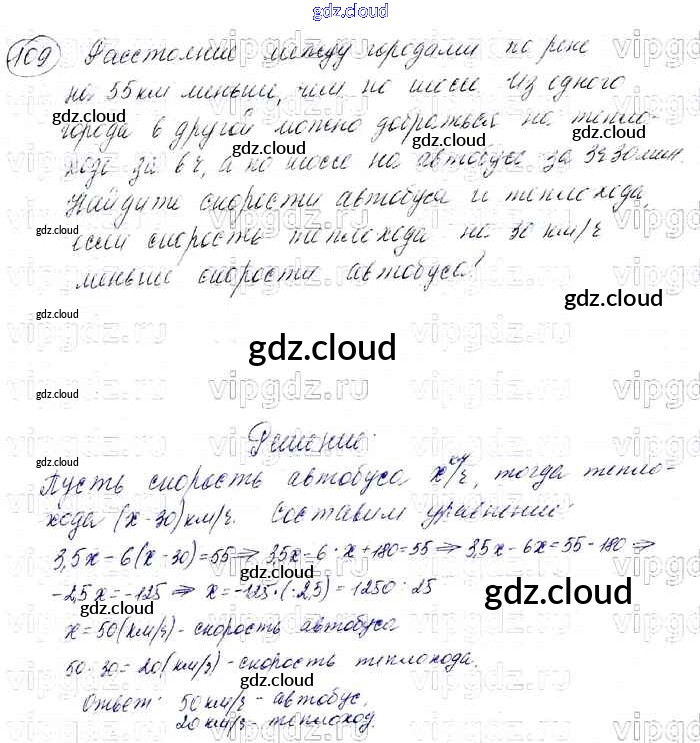 gdz.cloud
109 Расстояние между городами по реке
на 55 км меньше, чем по шоссе. Из одного
города в другой можно добраться на тепло-
ходе за 6 ч, а по шоссе на автобусе за 3ч 30 мин.
Найдите скорости автобуса и теплохода,
если скорость теплохода на 30 км/ч
меньше скорости автобуса?
gdz.cloud
gdz.cloud
Решение:
Пусть скорость автобуса x км/ч, тогда тепло-
хода (x-30) км/ч. Составим уравнение:
3,5x - 6(x - 30) = 55 ⇒ 3,5x - 6 · x + 180 = 55 ⇒ 3,5x - 6x = 55 - 180 ⇒
-2,5x = -125 ⇒ x = -125 : (-2,5) = 1250 : 25
gdz.cloud
x = 50 (км/ч) - скорость автобуса
50 - 30 = 20 (км/ч) - скорость теплохода.
Ответ: 50 км/ч - автобус,
20 км/ч - теплоход.